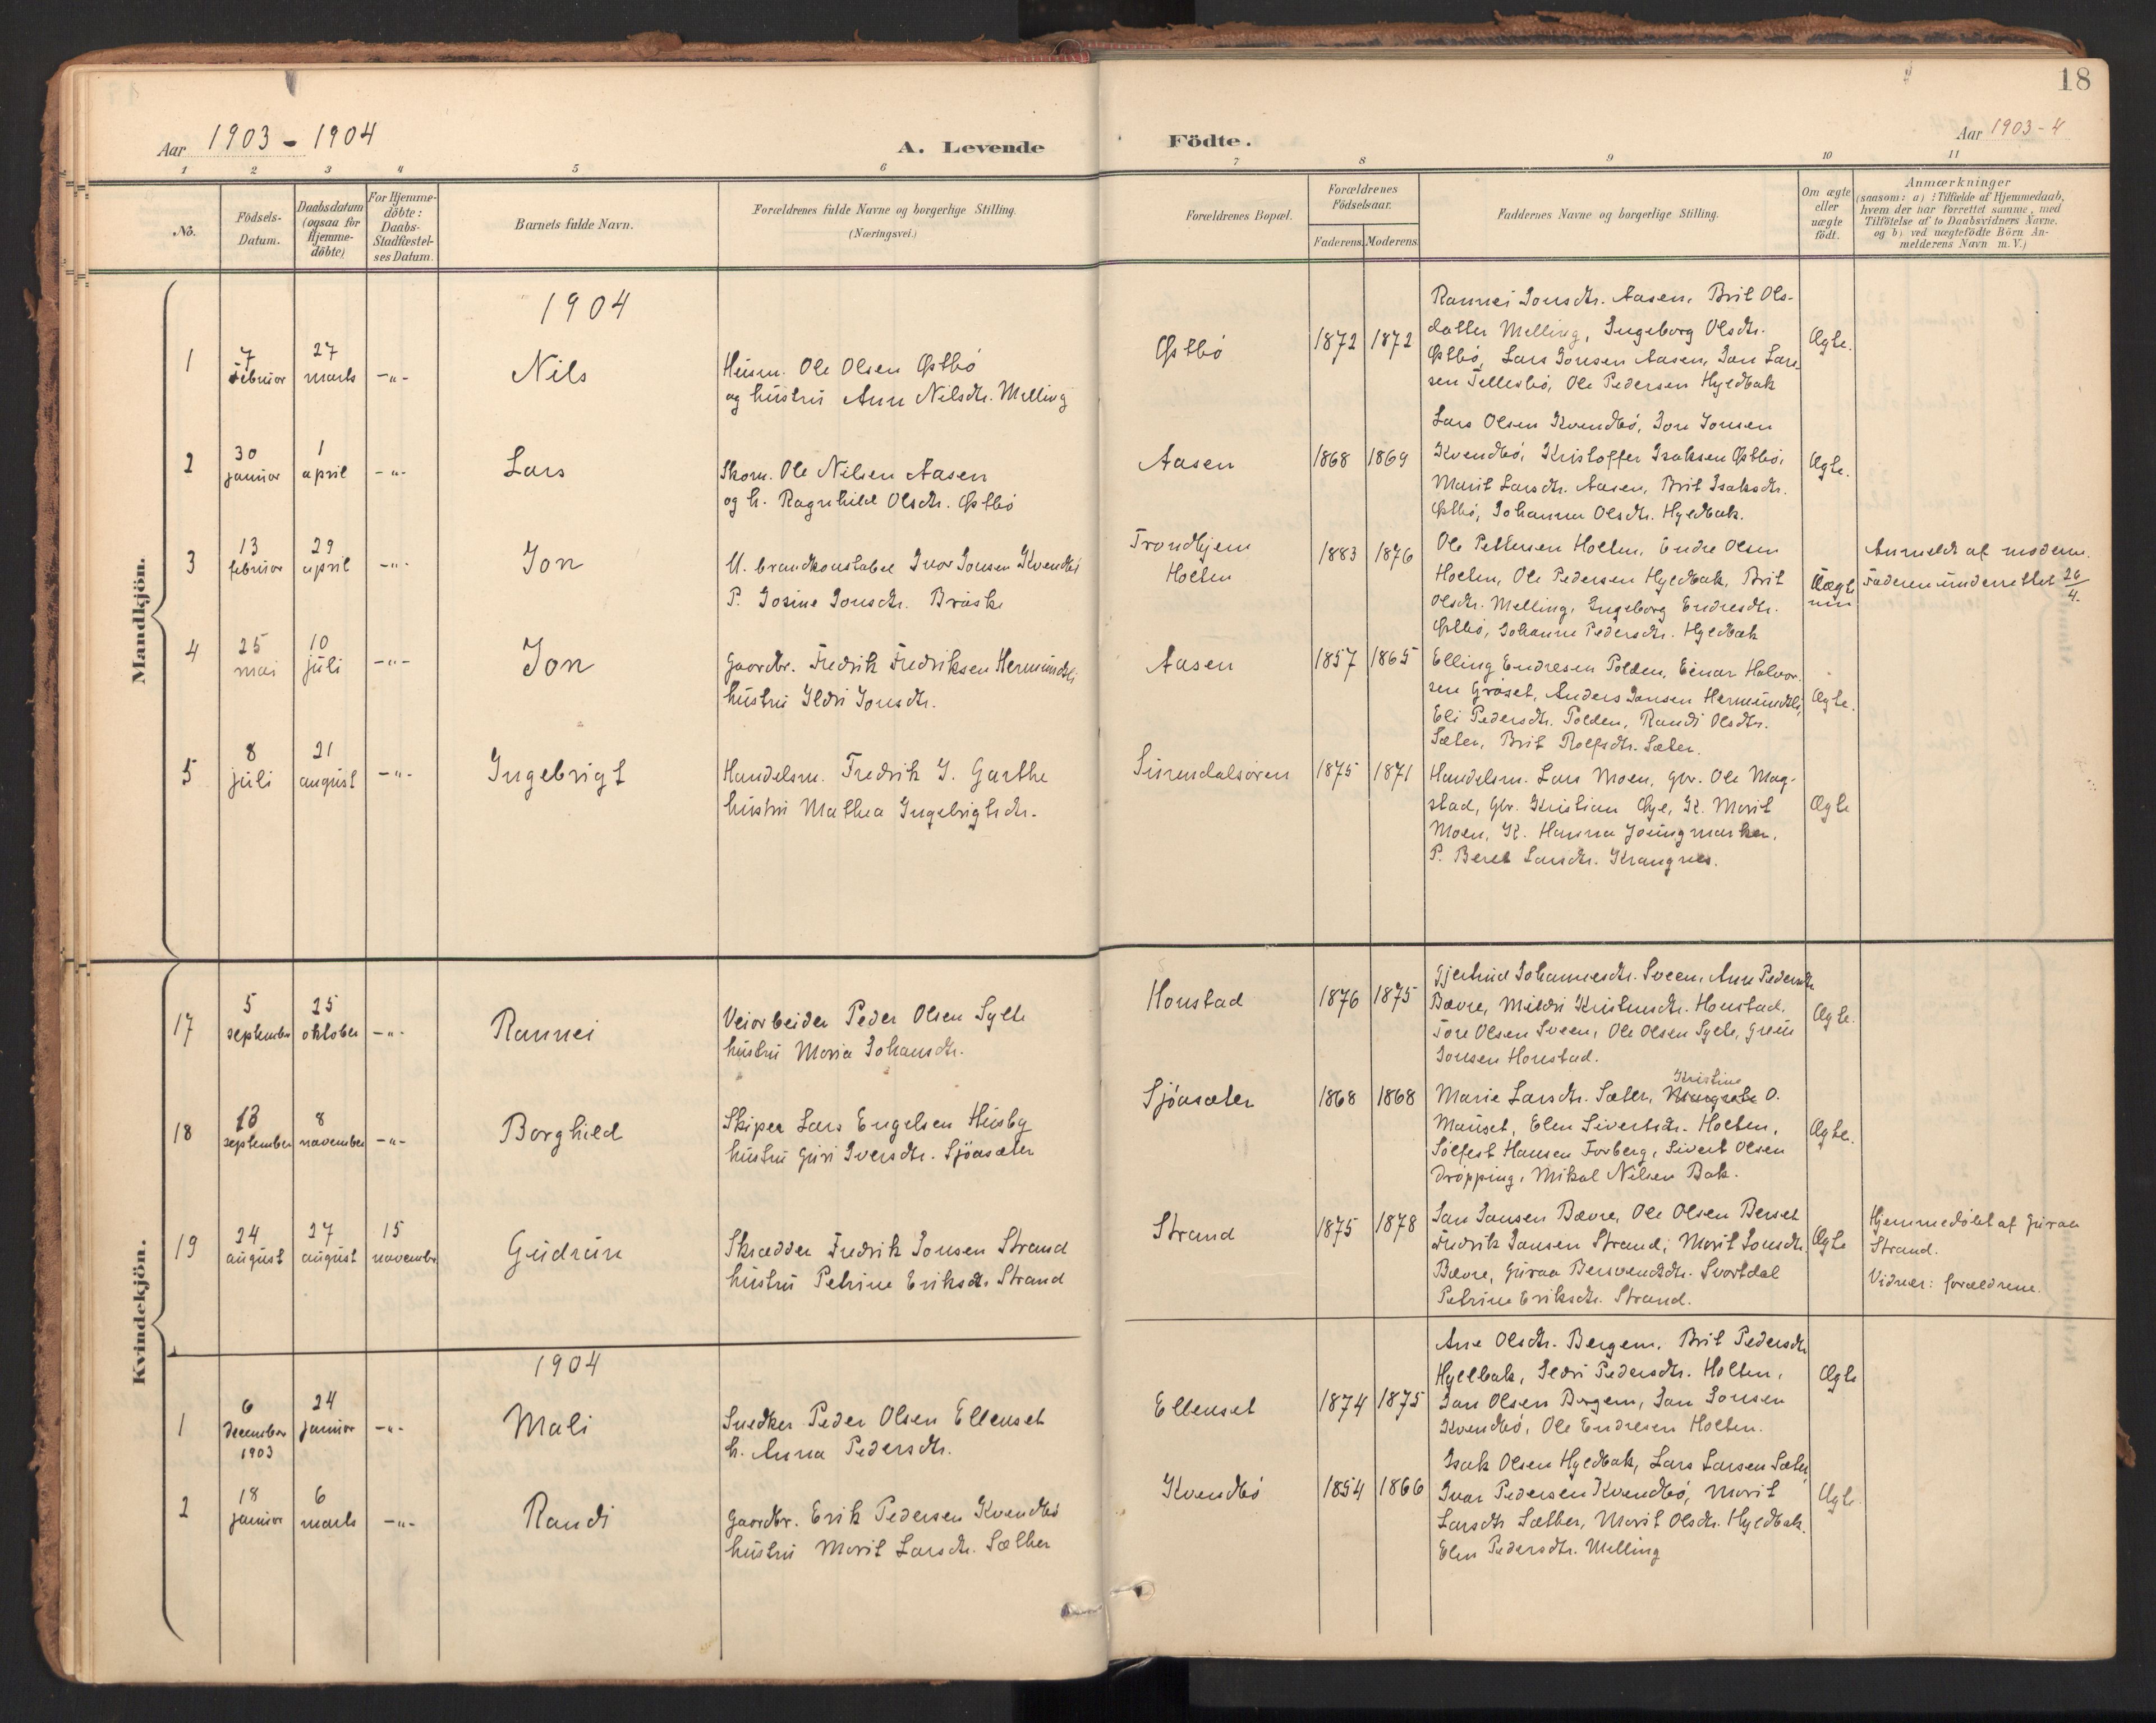 18
Aar 1903 - 1904
A. Levende Födte.
Aar 1903-4
1 2 3 4 5 6 7 8 9 10 11
No.
Födsels-
Datum.
Daabsdatum
(ogsaa for
Hjemme-
döbte)
For Hjemme-
döbte:
Daabs-
Stadfæstel-
ses Datum.
Barnets fulde Navn.
Forældrenes fulde Navne og borgerlige Stilling.
(Næringsvei.)
Forældrenes Bopæl.
Forældrenes
Födselsaar.
Faderens. Moderens.
Faddernes Navne og borgerlige Stilling.
Om ægte
eller
uægte
födt.
Anmærkninger
(saasom: a) i Tilfælde af Hjemmedaab,
hvem der har forrettet samme, med
Tilföielse af to Daabsvidners Navne,
og b) ved uægtefödte Börn An-
melderens Navn m. V.)
Mandkjön.
1904
1
7
februar
27
marts
-"-
Nils
Husm. Ole Olsen Østbö
og hustru Ane Nilsdtr. Melling
Østbö
1872 1872
Rannei Jonsdtr. Aasen, Brit Ols-
datter Melling, Ingeborg Olsdtr.
Østbö, Lars Jonsen Aasen, Jon Lar-
sen Tellesbö, Ole Pedersen Hyldbak
Ægte.
2
30
januar
1
april
-"-
Lars
Skom. Ole Nilsen Aasen
og h. Ragnhild Olsdtr. Østbö
Aasen
1868 1869
Lars Olsen Kvendbö, Jon Jonsen
Kvendbö, Kristoffer Isaksen Østbö,
Marit Larsdtr. Aasen, Brit Isaksdtr.
Østbö, Johanna Olsdtr. Hyldbak.
Ægte.
3
13
februar
29
april
-"-
Jon
U. brandkonstabel Ivar Jonsen Kvendbö
P. Josine Jonsdtr. Bråske
Trondhjem
Holten
1883 1876
Ole Pettersen Holten, Endre Olsen
Holten, Ole Pedersen Hyldbak, Brit
Olsdtr. Melling, Ingeborg Endresdtr.
Østbö, Johanne Pedersdtr. Hyldbak
Uægte
Anmeldt af moderen.
Faderen underrettet 26/4.
4
25
mai
10
juli
-"-
Jon
Gaardbr. Fredrik Fredriksen Hermundsli
hustru Ildri Jonsdtr.
Aasen
1857 1865
Elling Endresen Polden, Einar Halvor-
sen Gråset, Anders Jonsen Hermundsli,
Eli Pedersdtr. Polden, Randi Olsdtr.
Sæter, Brit Rolfsdtr. Sæter.
Ægte.
5
8
juli
21
august
-"-
Ingebrigt
Handelsm. Fredrik J. Garthe
hustru Mathea Ingebrigtsdtr.
Surendalsören
1875 1871
Handelsm. Lars Moen, gbr. Ole Mog-
stad, gbr. Kristian Øye, K. Marit
Moen, K. Hanna
P. Beret Larsdtr. Krangnes.
Ægte
Kvindekjön.
17
5
september
25
oktober
-"-
Rannei
Veiarbeider Peder Olsen Sylte
hustru Maria Johansdtr.
Honstad
1876 1875
Gjertrud Johannesdtr. Sveen, Ane Pedersdtr.
Bævre, Mildri Kristensdtr. Honstad,
Tore Olsen Sveen, Ole Olsen Sylte,
Jonsen Honstad.
Ægte.
18
13
september
8
november
-"-
Borghild
Skiper Lars Engelsen Husby
hustru Guri Iversdtr. Sjöasæter
Sjöasæter
1868 1868
Kristine
Marie Larsdtr. Sæter, O.
Mauset, Elen Sivertsdtr. Holten,
Solfest Hansen Torberg, Sivert Olsen
Dröpping, Mikal Nilsen Bak.
Ægte.
19
24
august
27
august
15
november
Gudrun
Skrædder Fredrik Jonsen Strand
hustru Petrine Eriksdtr. Strand
Strand
1875 1878
Jon Jonsen Bævre, Ole Olsen Berset
Fredrik Jonsen Strand, Marit Jonsdtr.
Bævre, Guraa Bersvendsdtr. Svartdal
Petrine Eriksdtr. Strand.
Ægte
Hjemmedöbt af Guraa
Strand.
Vidner: forældrene.
1904
1
6
december
1903
24
januar
-"-
Mali
Snedker Peder Olsen Ellenset
h. Anna Pedersdtr.
Ellenset
1874 1875
Ane Olsdtr. Bergem, Brit Pedersdtr.
Hyldbak, Ildri Pedersdtr. Holten,
Jon Olsen Bergem, Jon Jonsen
Kvendbö, Ole Endresen Holten.
Ægte
2
18
januar
6
marts
-"-
Randi
Gaardbr. Erik Pedersen Kvendbö
hustru Marit Larsdtr. Sæther
Kvendbö
1854 1866
Isak Olsen Hyldbak, Lars Larsen Sæter,
Ivar Pedersen Kvendbö, Marit
Larsdtr Sæther, Marit Olsdtr. Hyldbak,
Elen Pedersdtr. Melling
Ægte.